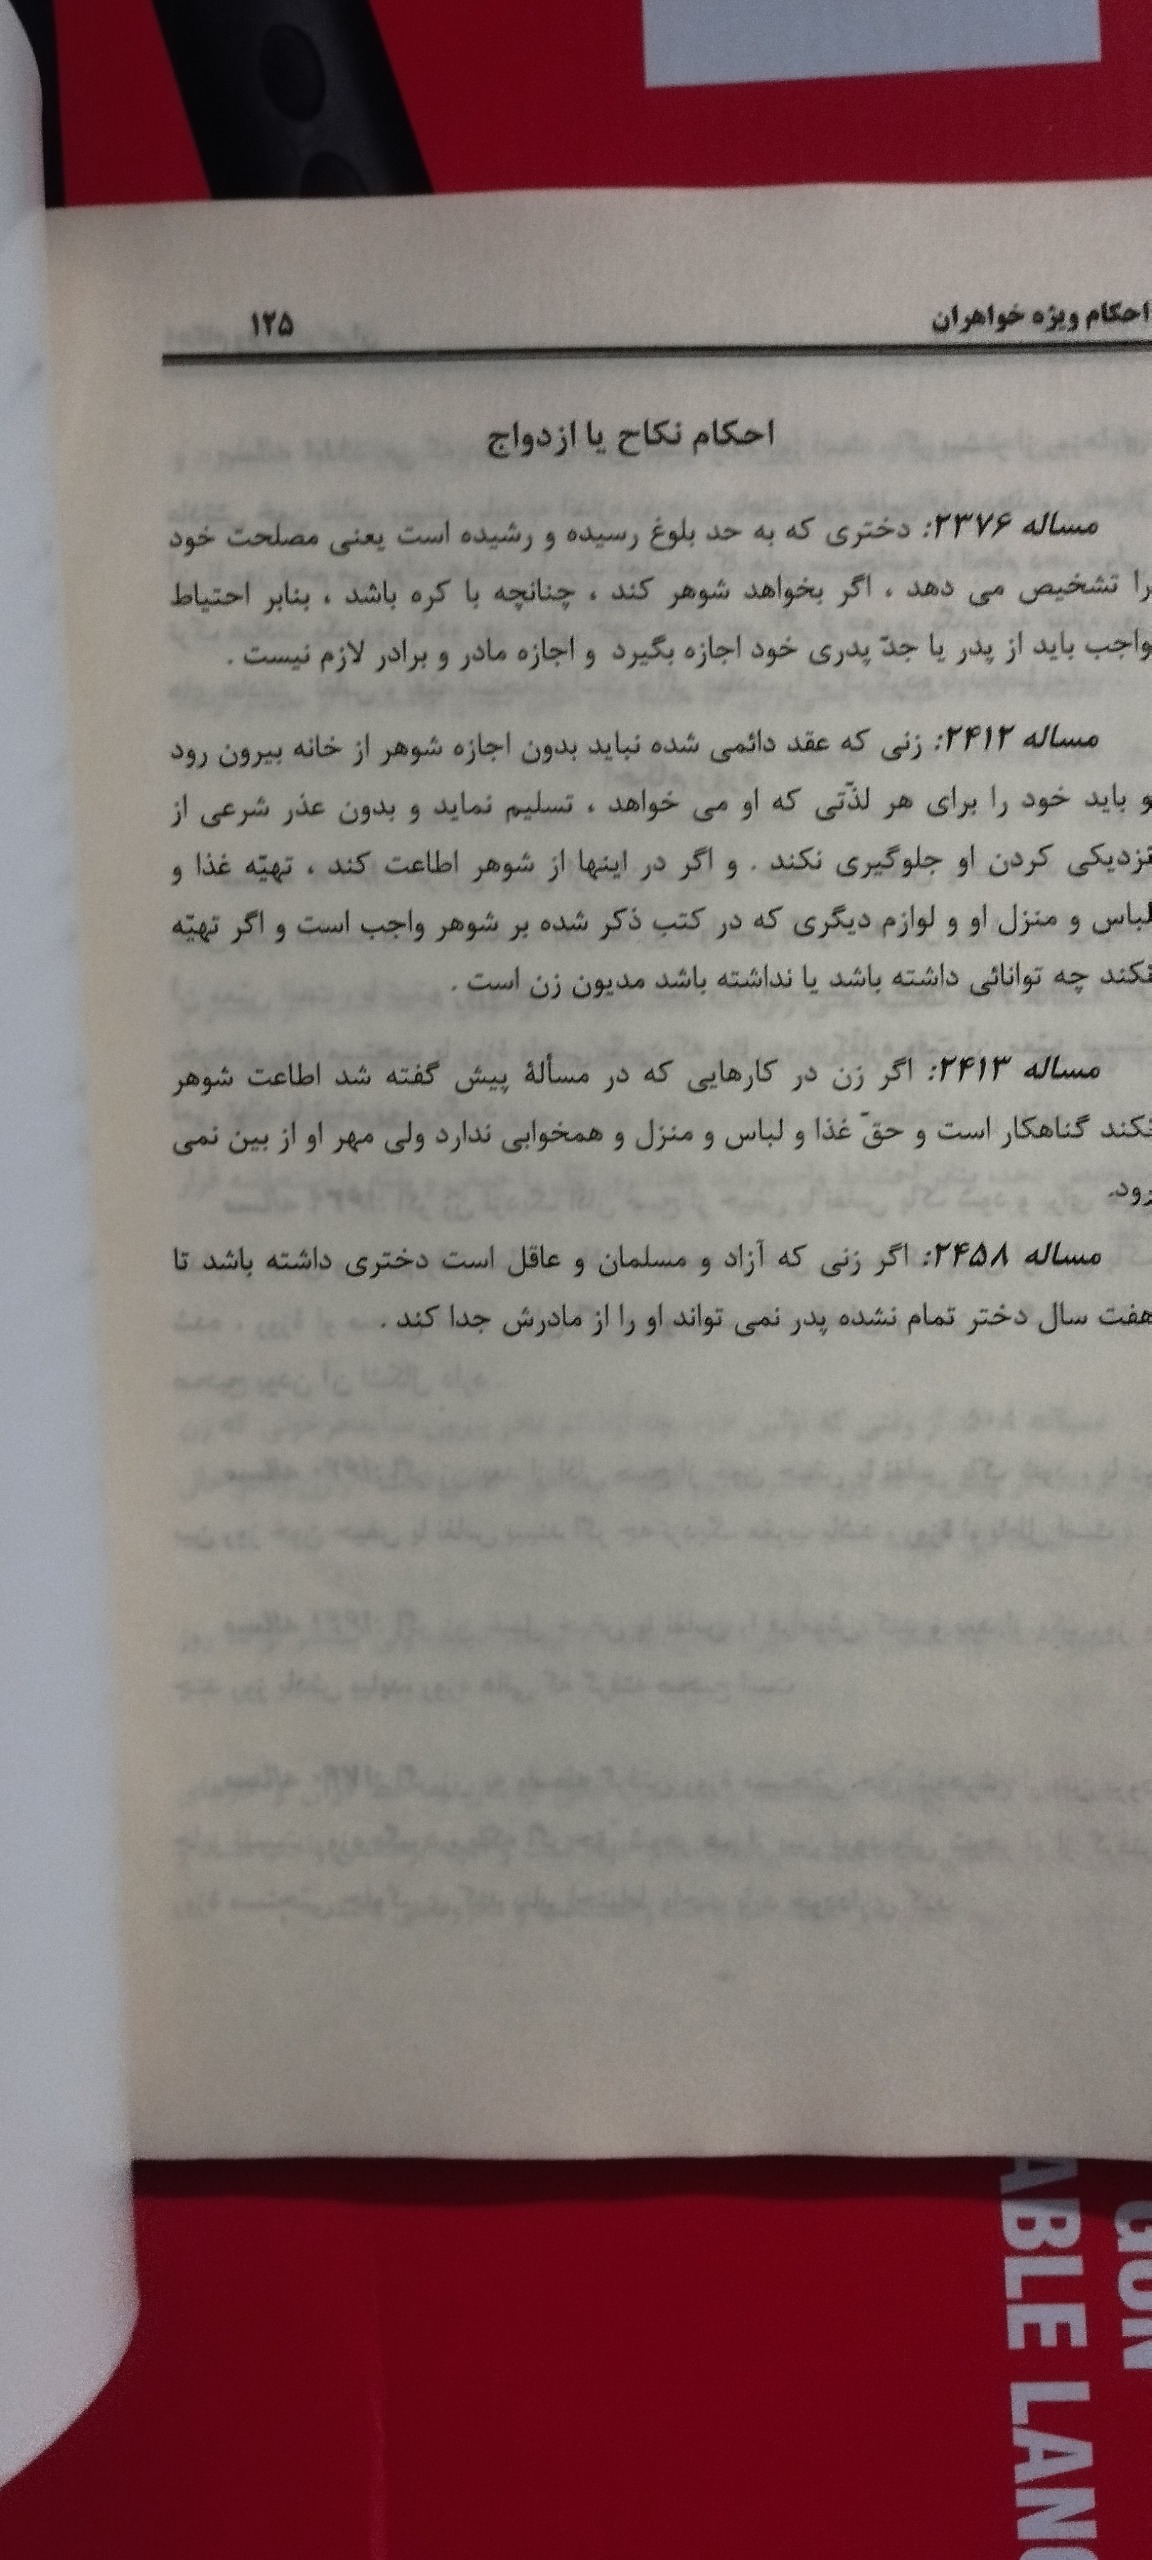 احکام ویژه خواهران
۱۲۵
احکام نکاح یا ازدواج
مساله ۲۳۷۶: دختری که به حد بلوغ رسیده و رشیده است یعنی مصلحت خود
را تشخیص می دهد ، اگر بخواهد شوهر کند ، چنانچه با کره باشد ، بنابر احتیاط
واجب باید از پدر یا جدّ پدری خود اجازه بگیرد و اجازه مادر و برادر لازم نیست .
مساله ۲۴۱۲: زنی که عقد دائمی شده نباید بدون اجازه شوهر از خانه بیرون رود
و باید خود را برای هر لذّتی که او می خواهد ، تسلیم نماید و بدون عذر شرعی از
نزدیکی کردن او جلوگیری نکند . و اگر در اینها از شوهر اطاعت کند ، تهیّه غذا و
لباس و منزل او و لوازم دیگری که در کتب ذکر شده بر شوهر واجب است و اگر تهیّه
نکند چه توانائی داشته باشد یا نداشته باشد مدیون زن است .
مساله ۲۴۱۳: اگر زن در کارهایی که در مسألۀ پیش گفته شد اطاعت شوهر
نکند گناهکار است و حقّ غذا و لباس و منزل و همخوابی ندارد ولی مهر او از بین نمی
رود.
مساله ۲۴۵۸: اگر زنی که آزاد و مسلمان و عاقل است دختری داشته باشد تا
هفت سال دختر تمام نشده پدر نمی تواند او را از مادرش جدا کند .
ABLE LANG
GUN